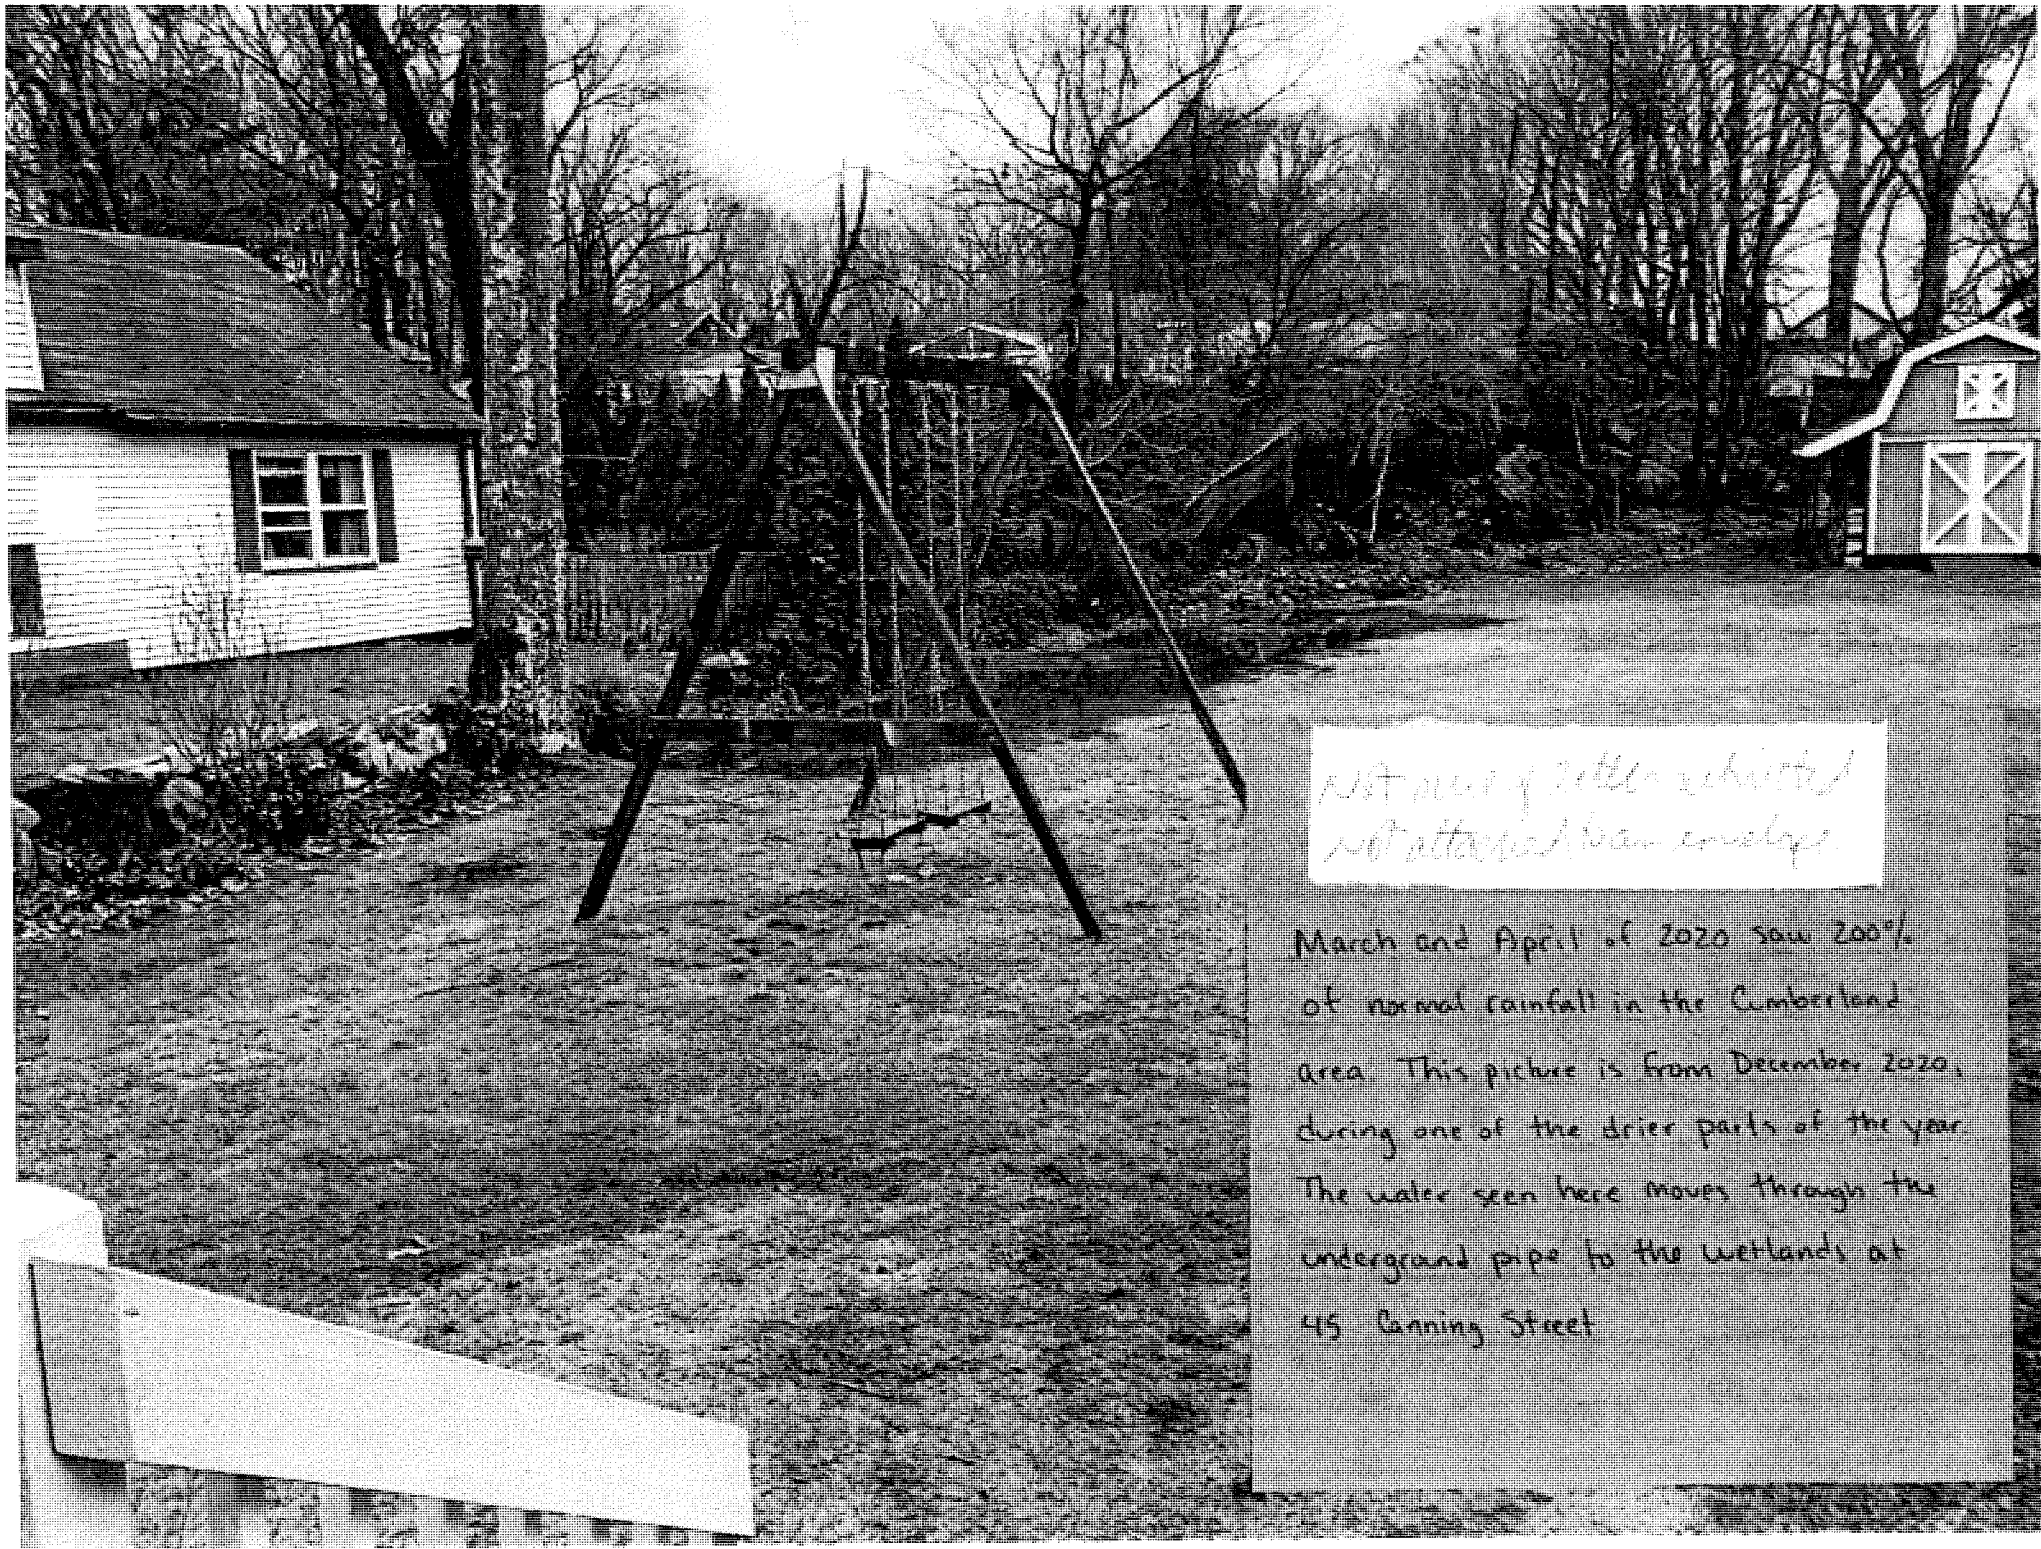 Not
not attached
March and April of 2020 saw 200%
of normal rainfall in the Cumberland
area. This picture is from December 2020,
during one of the drier parts of the year.
The water seen here moves through the
underground pipe to the wetlands at
45 Canning Street